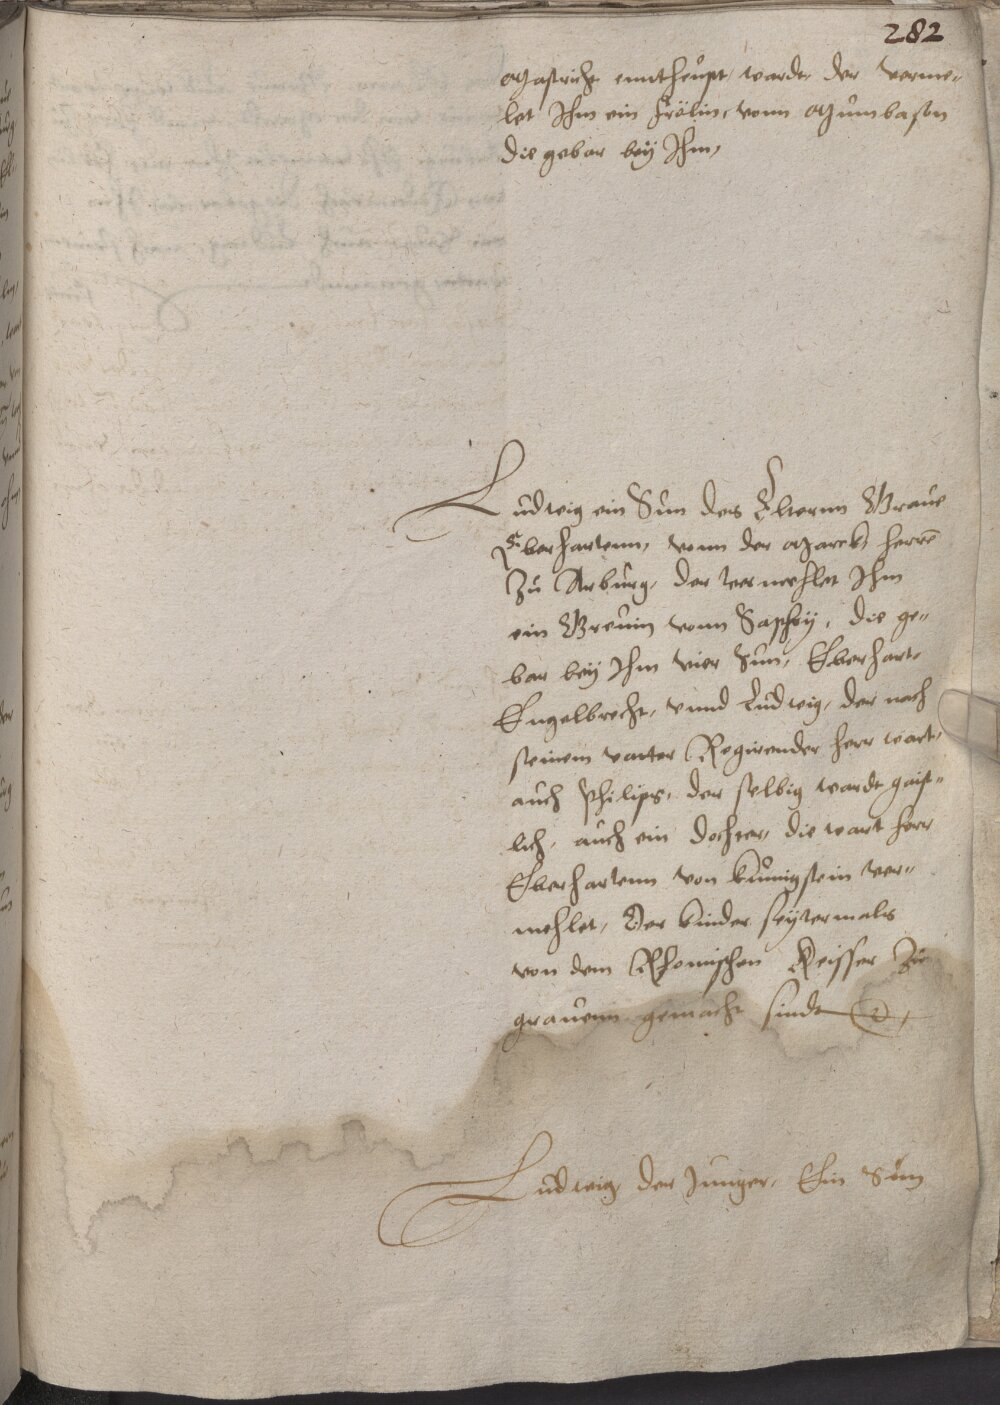 282
Mastricht enntheupt wardt, der verme„
let Ihm ein Frölin, vonn Mumbason
die gebar bey Ihm,
Ludwig ein Sun des Elternn Graue
Eberhartenn, vonn der Marck, herrē
Zu Arburg, der vermehlet Ihm
ein Greuin vonn Saphoy, die ge„
bar bey Ihm vier Sun, Eberhart,
Engelbrecht, vnnd Ludwig, der nach
seinem vatter Regirender herr wart,
auch Philips, der selbig wardt gaist„
lich, auch ein dochter, die wart herr
Eberhartenn von kunigstein ver„
mehlet, Der kinder seytermals
von dem Rhomischen Keisser Zu
grauenn gemacht sindt
Ludwig der Junger, Ein Sun